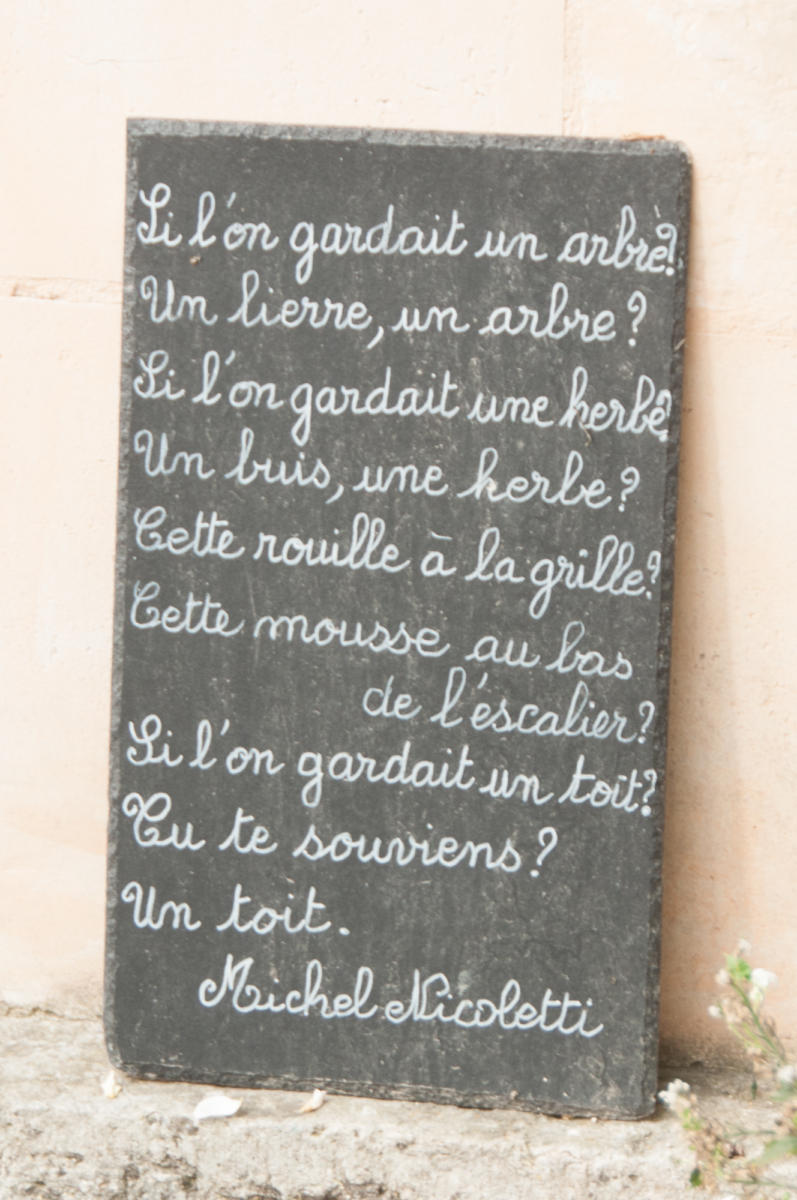 Si l'on gardait un arbre?
Un lierre, un arbre?
Si l'on gardait une herbe?
Un buis, une herbe?
Cette rouille à la grille?
Cette mousse au bas
de l'escalier?
Si l'on gardait un toit?
Tu te souviens?
Un toit.
Michel Nicoletti